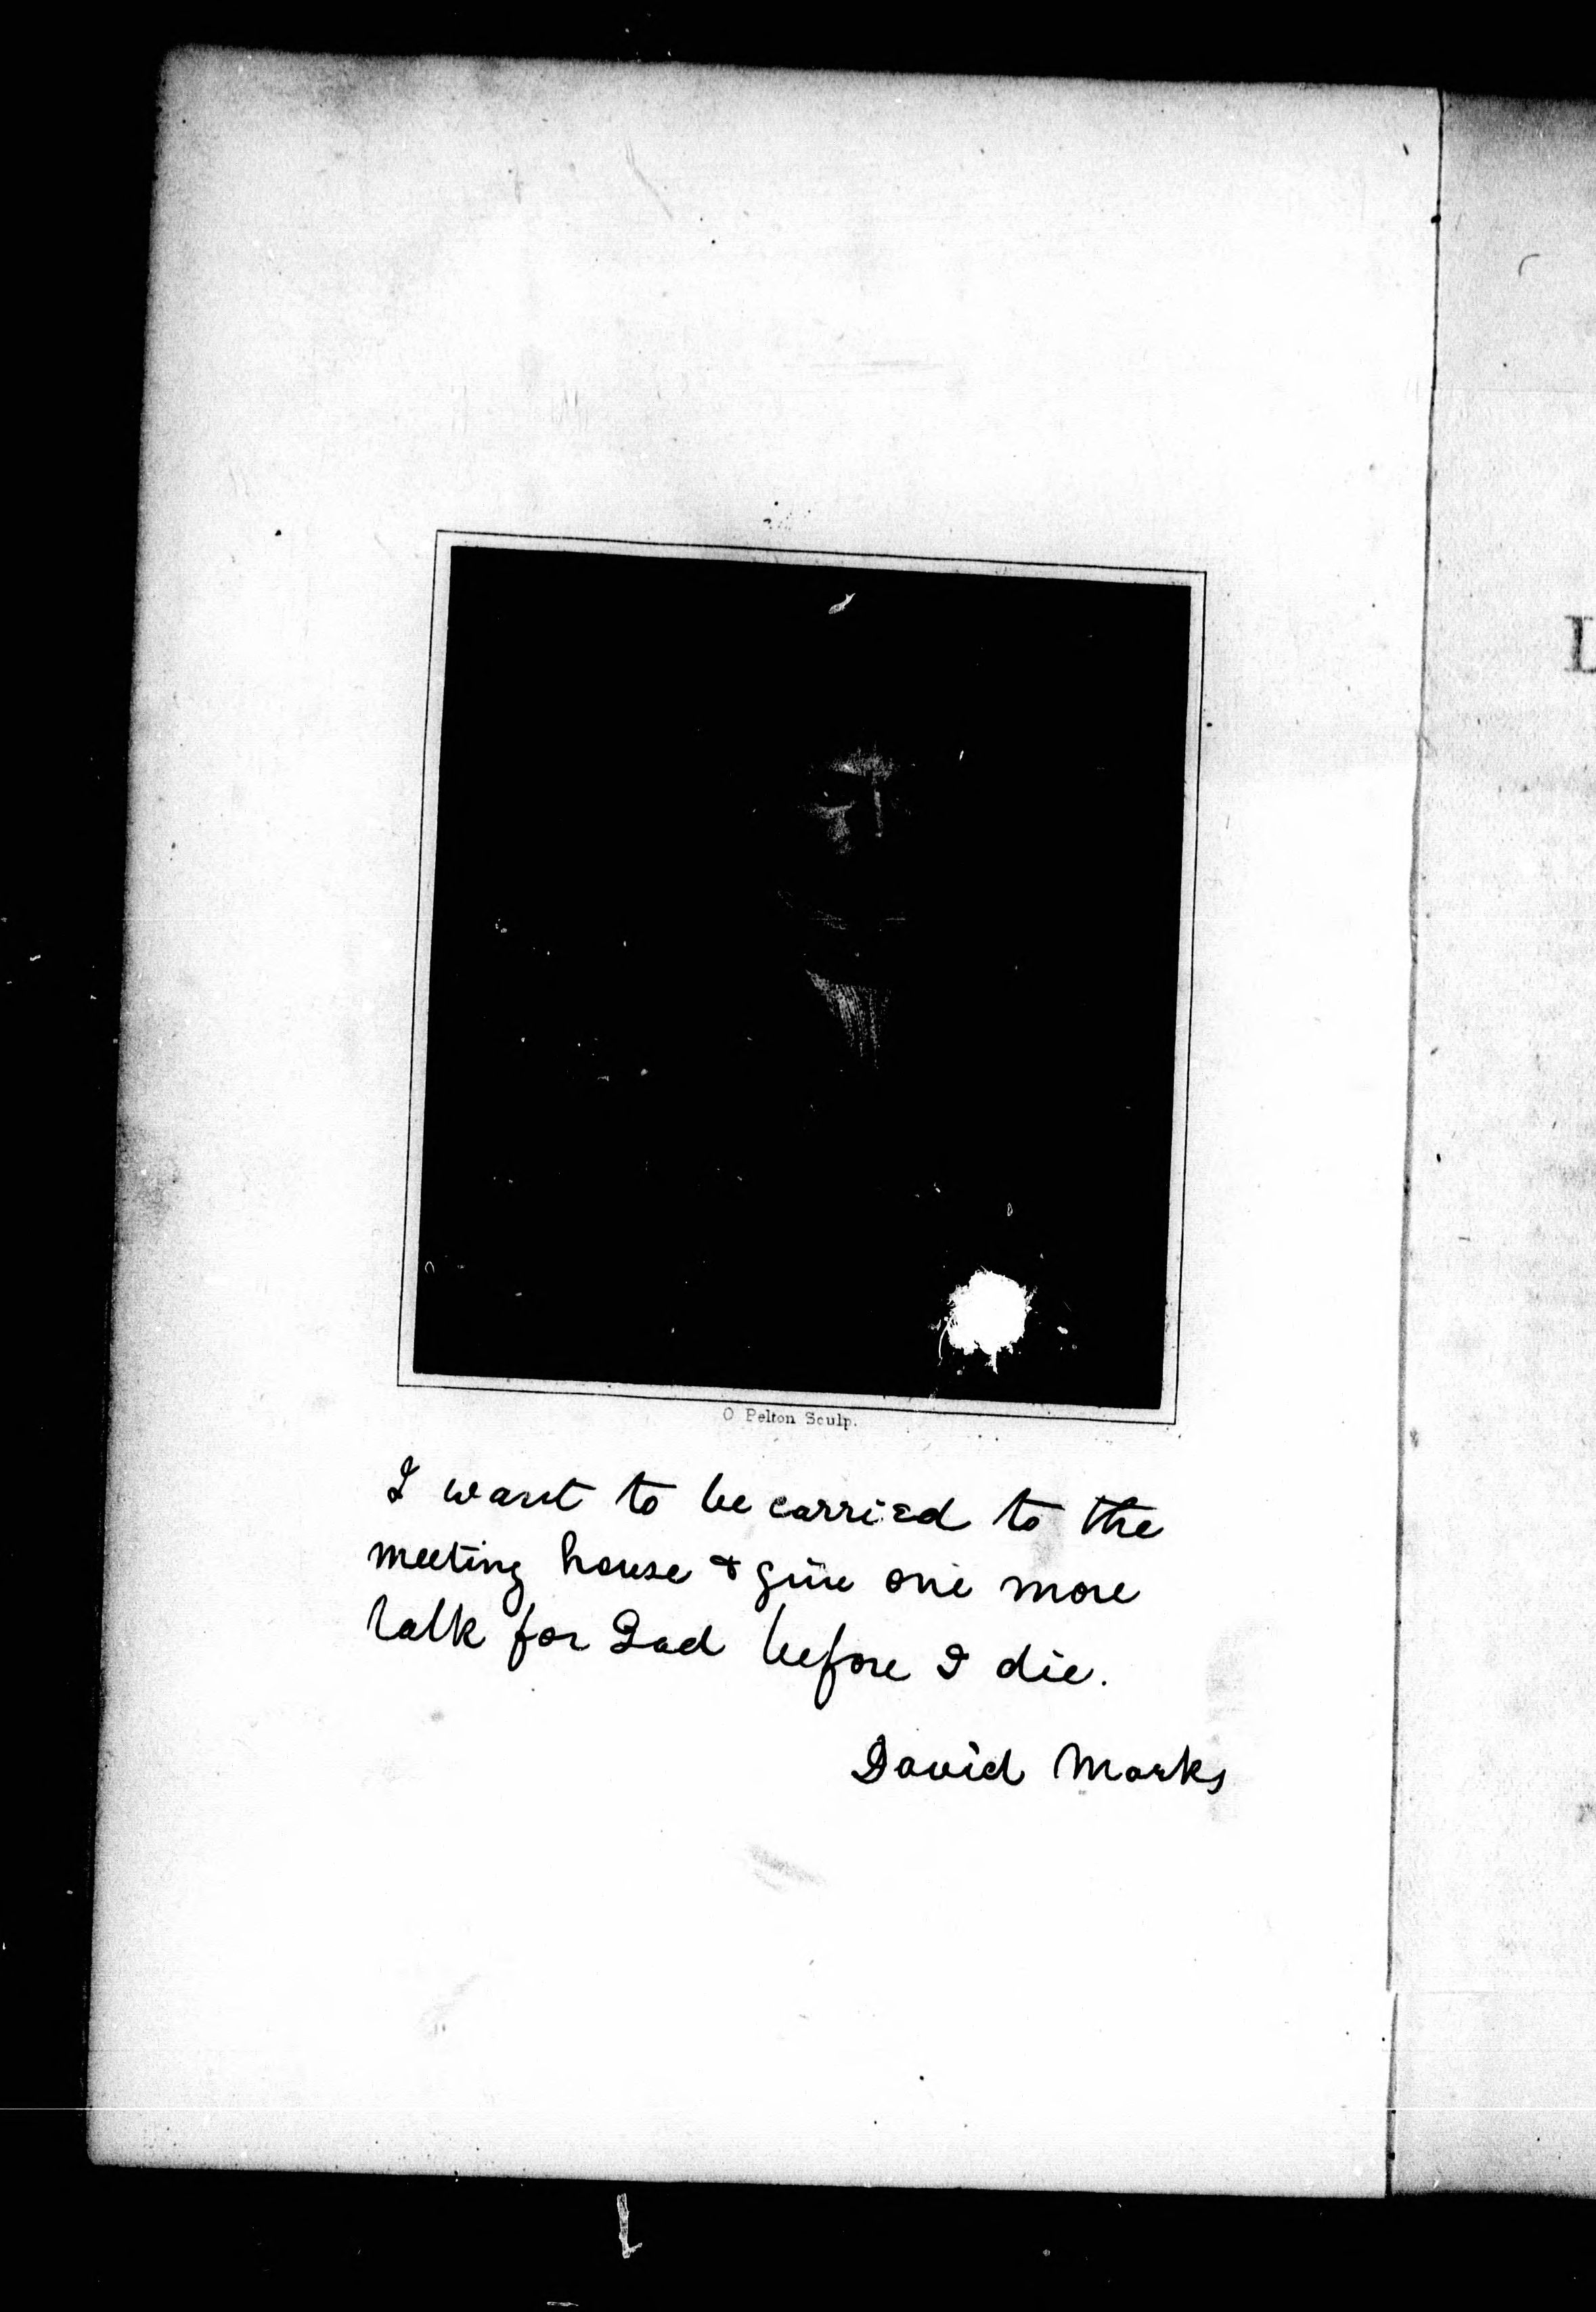 O Pelton Sculp.
I want to be carried to the
meeting house & give one more
talk for God before I die.
David Marks
L